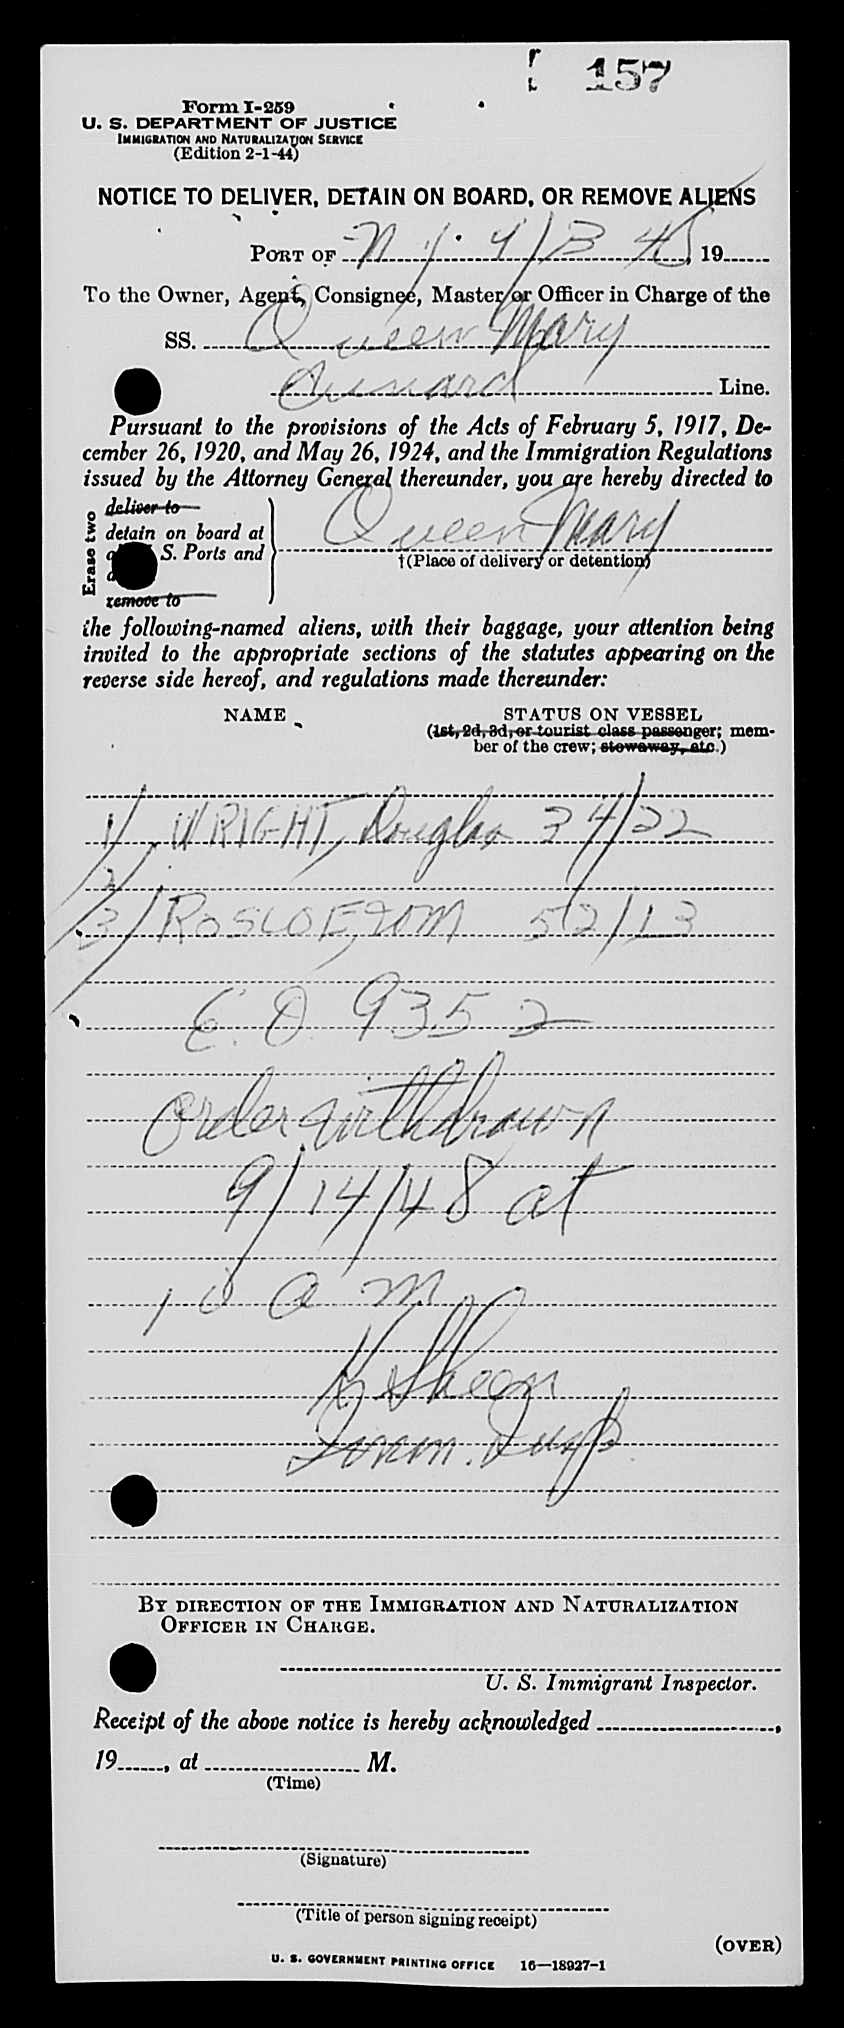 157
Form I-259
U. S. DEPARTMENT OF JUSTICE
IMMIGRATION AND NATURALIZATION SERVICE
(Edition 2-1-44)
NOTICE TO DELIVER, DETAIN ON BOARD, OR REMOVE ALIENS
PORT OF N.Y. 19
To the Owner, Agent, Consignee, Master or Officer in Charge of the
SS. Queen Mary
Cunard Line.
Pursuant to the provisions of the Acts of February 5, 1917, De-
cember 26, 1920, and May 26, 1924, and the Immigration Regulations
issued by the Attorney General thereunder, you are hereby directed to
Erase two
deliver to
detain on board at
S. Ports and
remove to
Queen Mary
†(Place of delivery or detention)
the following-named aliens, with their baggage, your attention being
invited to the appropriate sections of the statutes appearing on the
reverse side hereof, and regulations made thereunder:
NAME STATUS ON VESSEL
(1st, 2d, 3d, or tourist class passenger; mem-
ber of the crew; stowaway, etc.)
1/ WRIGHT, Douglas 34/22
2/
3/ ROSCOE, WM 52/13
E.O. 9352
Order withdrawn
9/14/48 at
10 a m
K Sheen
Immn. Insp.
BY DIRECTION OF THE IMMIGRATION AND NATURALIZATION
OFFICER IN CHARGE.
U. S. Immigrant Inspector.
Receipt of the above notice is hereby acknowledged ,
19 , at M.
(Time)
(Signature)
(Title of person signing receipt)
(OVER)
U. S. GOVERNMENT PRINTING OFFICE 16—18927-1